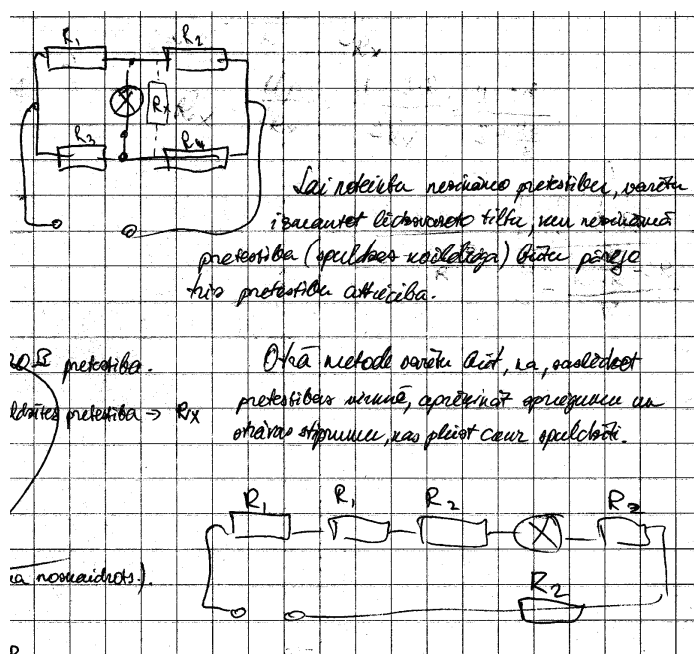 R₁ R₂
Rx
R₃ R₄
Lai noteiktu nezināmo pretestību, varētu
izmantot līdzsvaroto tiltu, kur nezināmā
pretestība (spuldzes kvēldiega) būtu pārējo
trīs pretestību attiecība.
20 Ω pretestība.
pretestība → Rx
Otrā metode varētu būt, ka, saslēdzot
pretestības virknē, aprēķināt spriegumu un
strāvas stiprumu, kas plūst caur spuldzīti.
R₁ R₁ R₂ R₂
R₂
noskaidrots.).